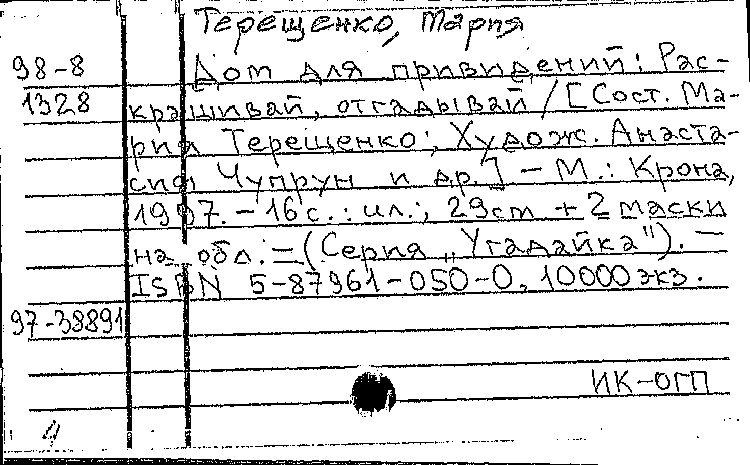 Терещенко, Мария
98-8 Дом для привидений: Рас-
1328 крашивай, отгадывай / [Сост. Ма-
рия Терещенко; Худож. Анаста-
сия Чупрун и др.] - М.: Крона,
1997. - 16 с.: ил.; 29 cm + 2 маски
на обл. - (Серия „Угадайка"). -
ISBN 5-87961-050-0, 10000 экз.
97-38891
ИК-ОГП
4